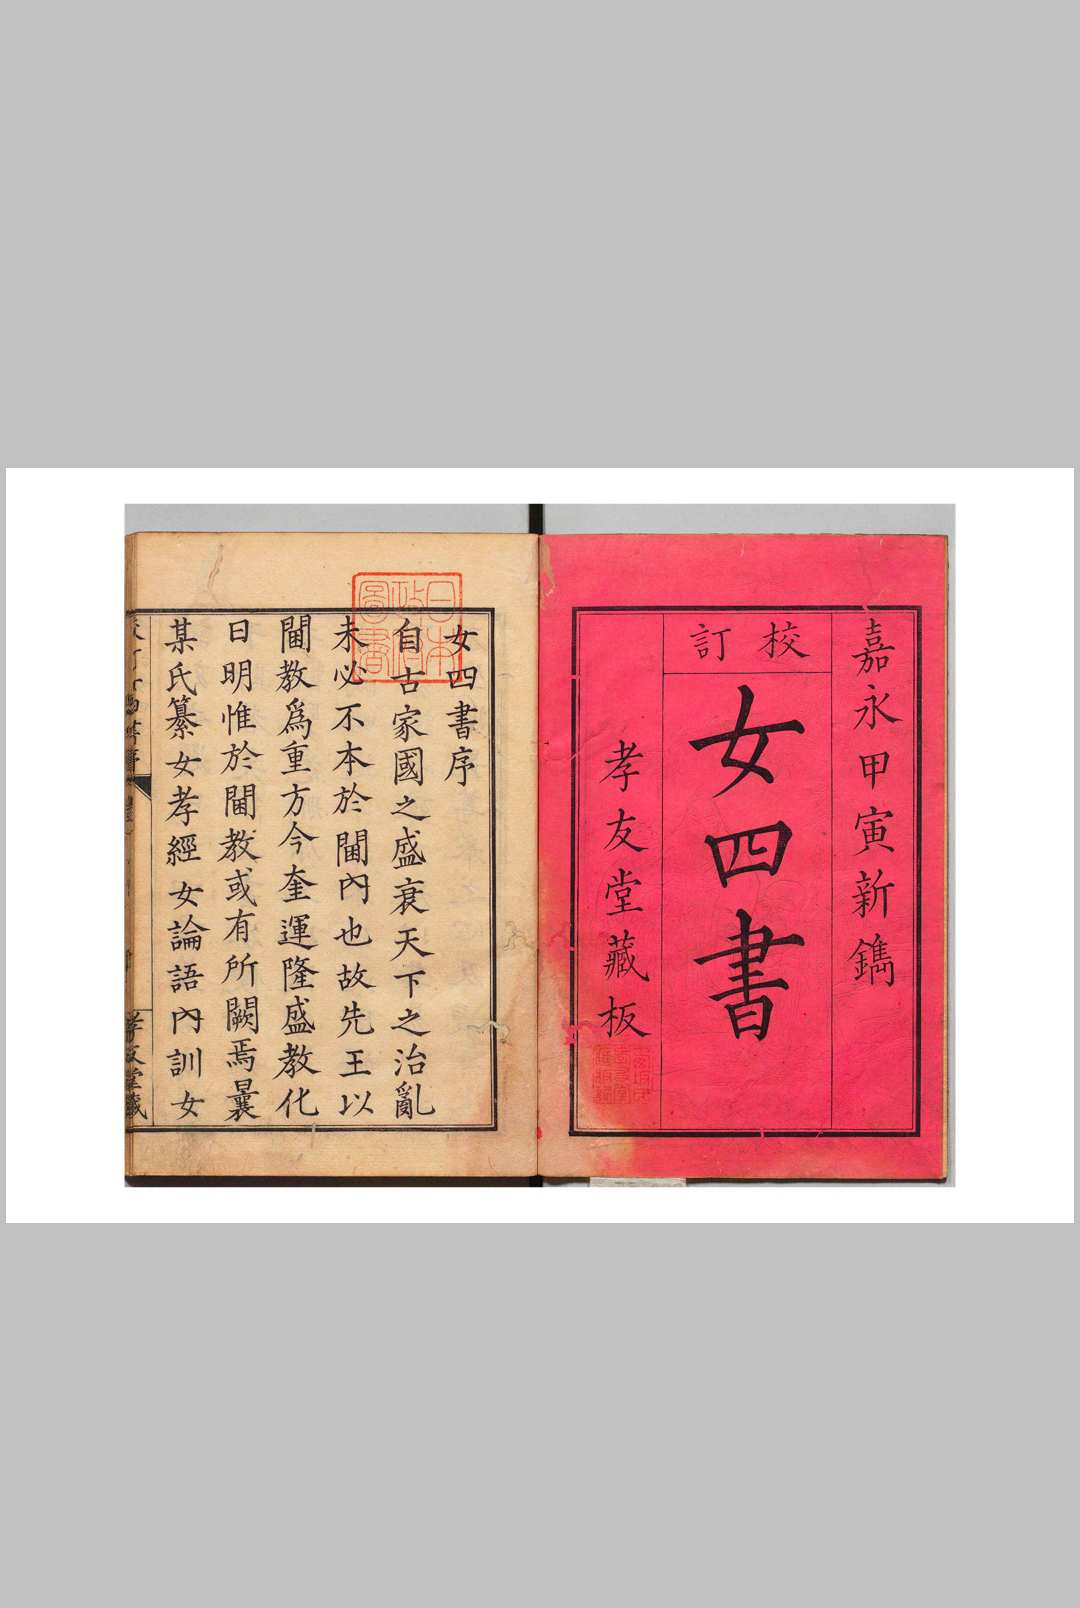 嘉永甲寅新鐫
校訂
女四書
孝友堂藏板
女四書序
自古家國之盛衰天下之治亂
未必不本於閫內也故先王以
閫教爲重方今奎運隆盛教化
日明惟於閫教或有所闕焉曩
某氏纂女孝經女論語內訓女
日本政府圖書